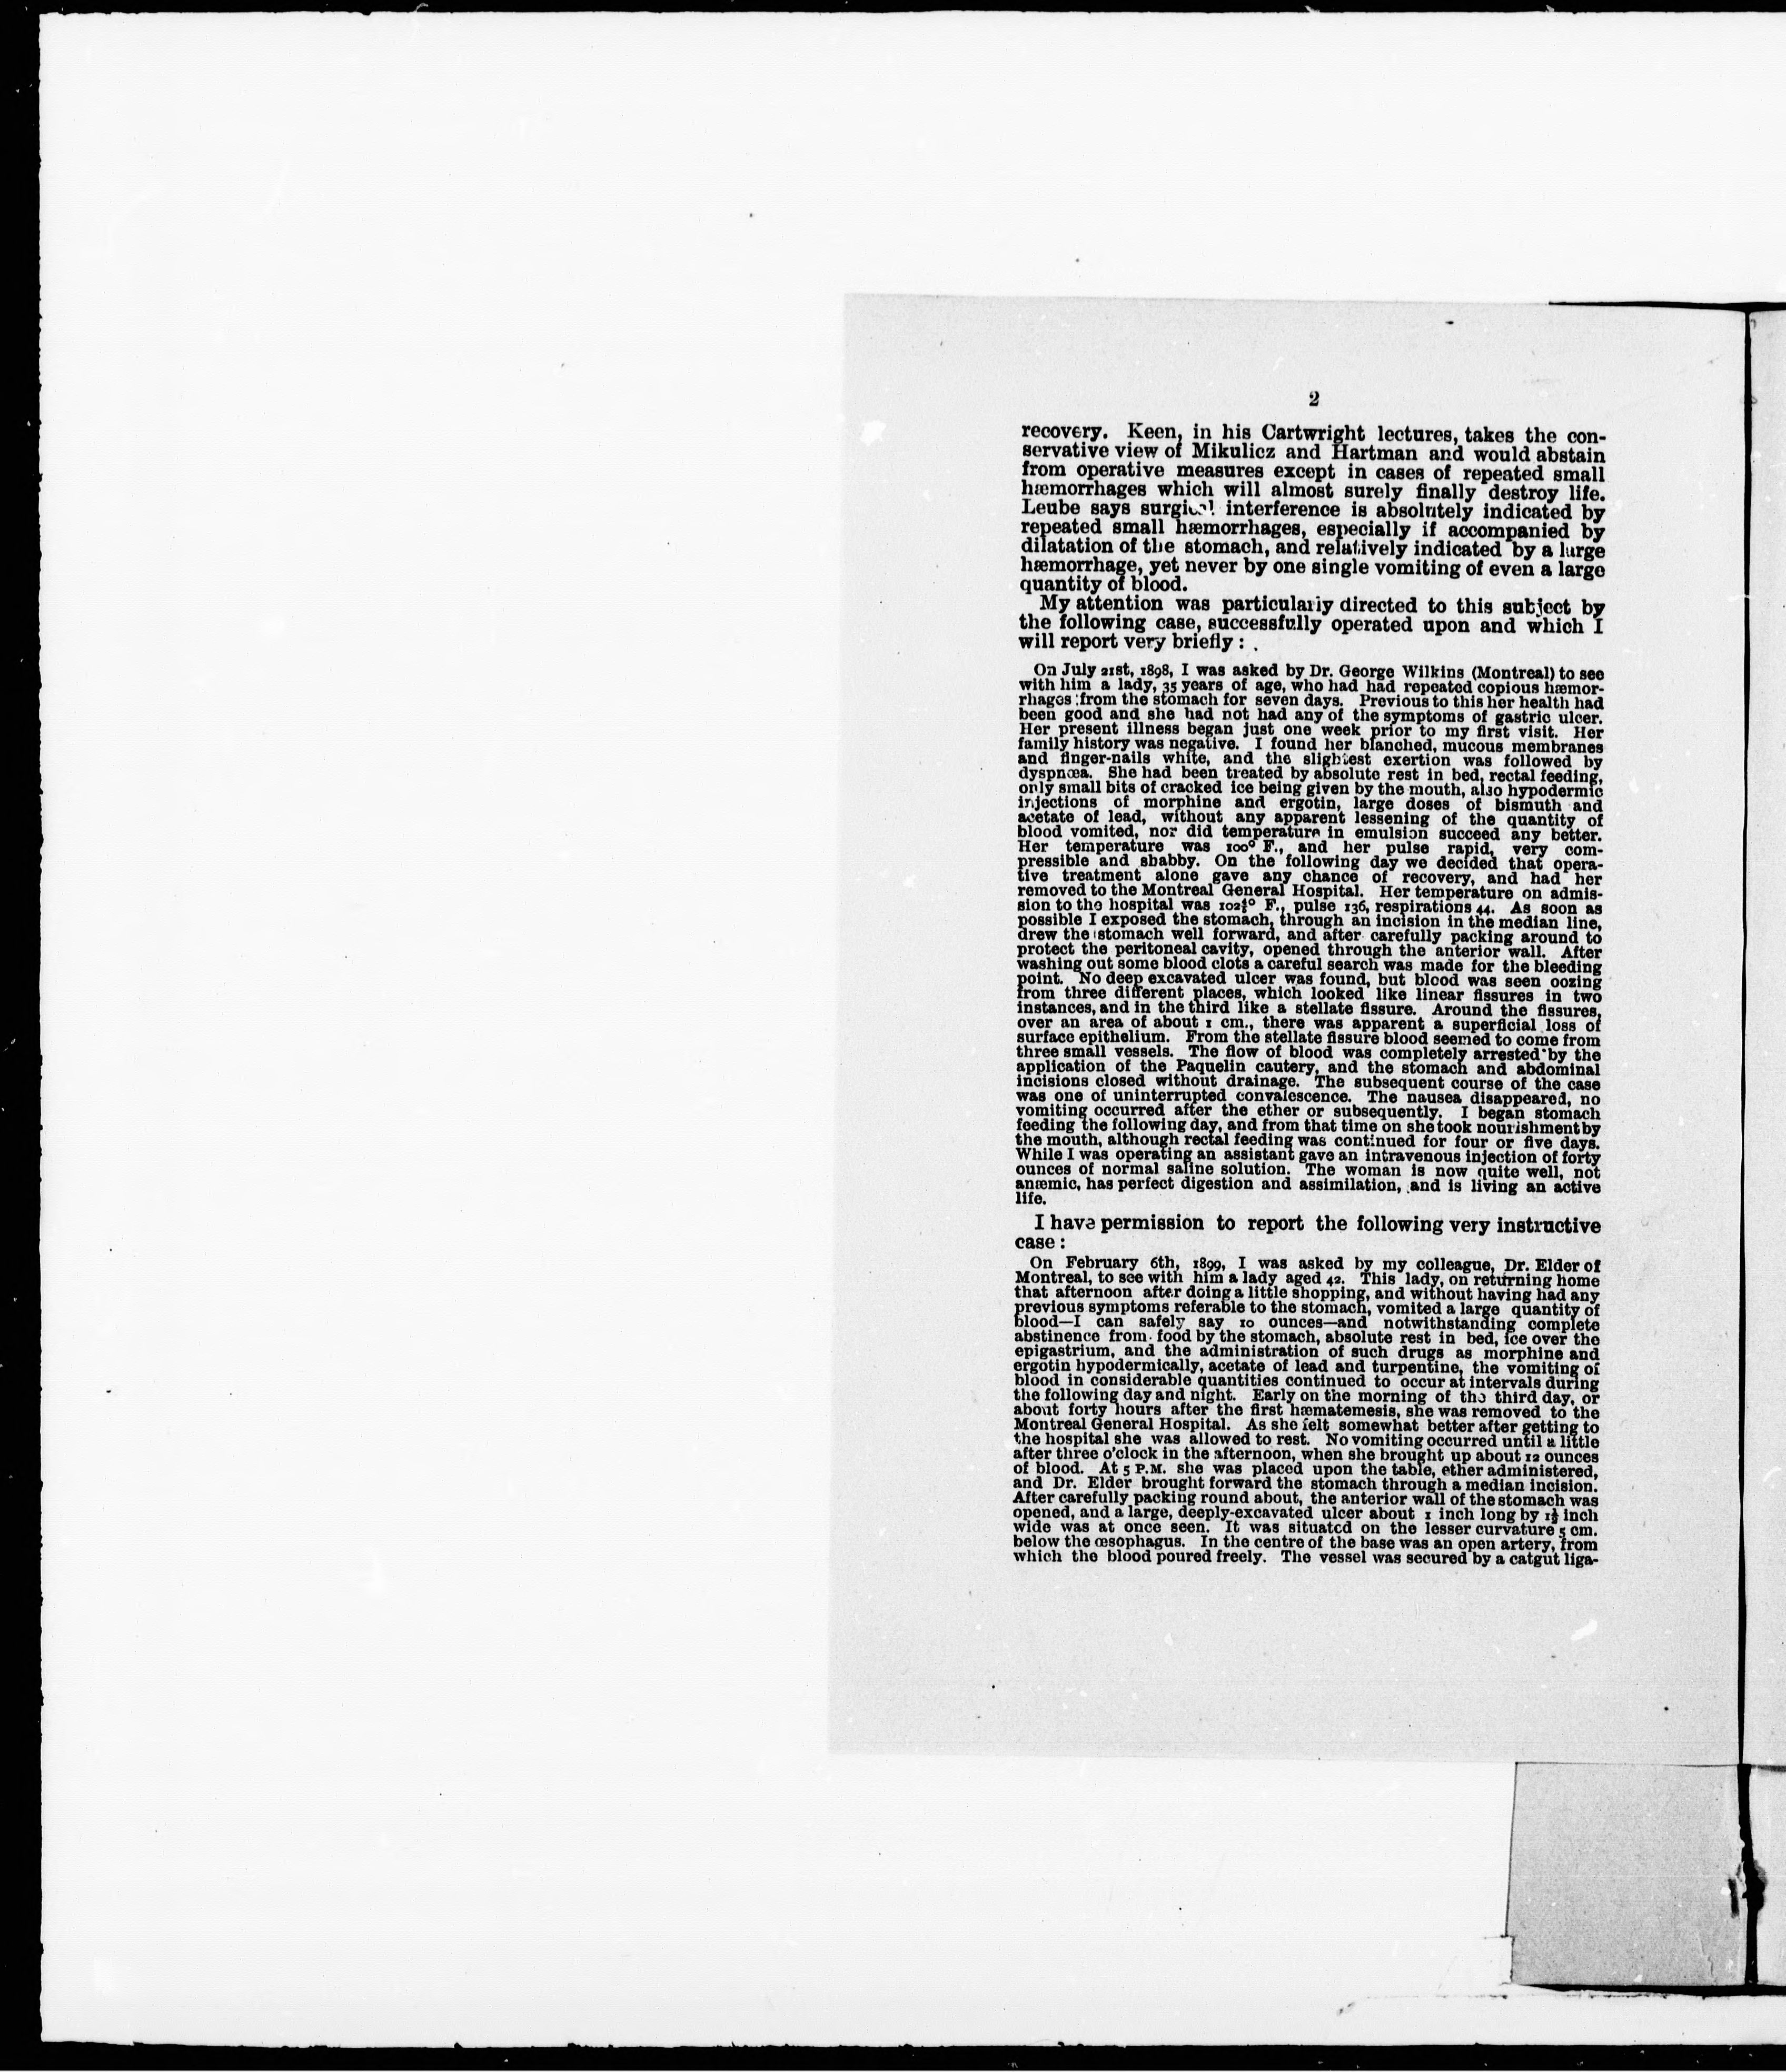 2
recovery. Keen, in his Cartwright lectures, takes the con-
servative view of Mikulicz and Hartman and would abstain
from operative measures except in cases of repeated small
hæmorrhages which will almost surely finally destroy life.
Leube says surgical interference is absolutely indicated by
repeated small hæmorrhages, especially if accompanied by
dilatation of the stomach, and relatively indicated by a large
hæmorrhage, yet never by one single vomiting of even a large
quantity of blood.
My attention was particularly directed to this subject by
the following case, successfully operated upon and which I
will report very briefly:
On July 21st, 1898, I was asked by Dr. George Wilkins (Montreal) to see
with him a lady, 35 years of age, who had had repeated copious hæmor-
rhages from the stomach for seven days. Previous to this her health had
been good and she had not had any of the symptoms of gastric ulcer.
Her present illness began just one week prior to my first visit. Her
family history was negative. I found her blanched, mucous membranes
and finger-nails white, and the slightest exertion was followed by
dyspnœa. She had been treated by absolute rest in bed, rectal feeding,
only small bits of cracked ice being given by the mouth, also hypodermic
injections of morphine and ergotin, large doses of bismuth and
acetate of lead, without any apparent lessening of the quantity of
blood vomited, nor did temperature in emulsion succeed any better.
Her temperature was 100° F., and her pulse rapid, very com-
pressible and shabby. On the following day we decided that opera-
tive treatment alone gave any chance of recovery, and had her
removed to the Montreal General Hospital. Her temperature on admis-
sion to the hospital was F., pulse 136, respirations 44. As soon as
possible I exposed the stomach, through an incision in the median line,
drew the stomach well forward, and after carefully packing around to
protect the peritoneal cavity, opened through the anterior wall. After
washing out some blood clots a careful search was made for the bleeding
point. No deep excavated ulcer was found, but blood was seen oozing
from three different places, which looked like linear fissures in two
instances, and in the third like a stellate fissure. Around the fissures,
over an area of about 1 cm., there was apparent a superficial loss of
surface epithelium. From the stellate fissure blood seemed to come from
three small vessels. The flow of blood was completely arrested by the
application of the Paquelin cautery, and the stomach and abdominal
incisions closed without drainage. The subsequent course of the case
was one of uninterrupted convalescence. The nausea disappeared, no
vomiting occurred after the ether or subsequently. I began stomach
feeding the following day, and from that time on she took nourishment by
the mouth, although rectal feeding was continued for four or five days.
While I was operating an assistant gave an intravenous injection of forty
ounces of normal saline solution. The woman is now quite well, not
anæmic, has perfect digestion and assimilation, and is living an active
life.
I have permission to report the following very instructive
case:
On February 6th, 1899, I was asked by my colleague, Dr. Elder of
Montreal, to see with him a lady aged 42. This lady, on returning home
that afternoon after doing a little shopping, and without having had any
previous symptoms referable to the stomach, vomited a large quantity of
blood—I can safely say 10 ounces—and notwithstanding complete
abstinence from food by the stomach, absolute rest in bed, ice over the
epigastrium, and the administration of such drugs as morphine and
ergotin hypodermically, acetate of lead and turpentine, the vomiting of
blood in considerable quantities continued to occur at intervals during
the following day and night. Early on the morning of the third day, or
about forty hours after the first hæmatemesis, she was removed to the
Montreal General Hospital. As she felt somewhat better after getting to
the hospital she was allowed to rest. No vomiting occurred until a little
after three o'clock in the afternoon, when she brought up about 12 ounces
of blood. At 5 P.M. she was placed upon the table, ether administered,
and Dr. Elder brought forward the stomach through a median incision.
After carefully packing round about, the anterior wall of the stomach was
opened, and a large, deeply-excavated ulcer about 1 inch long by inch
wide was at once seen. It was situated on the lesser curvature 5 cm.
below the œsophagus. In the centre of the base was an open artery, from
which the blood poured freely. The vessel was secured by a catgut liga-